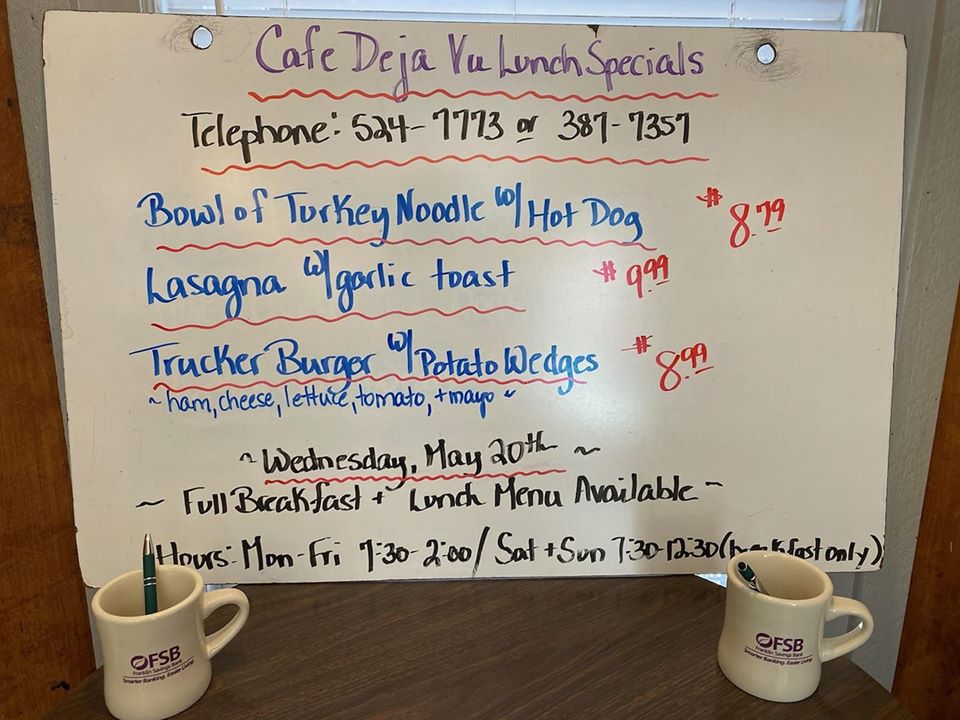 Cafe Deja Vu Lunch Specials
Telephone: 524-7773 or 387-7357
Bowl of Turkey Noodle w/ Hot Dog $8.79
Lasagna w/ garlic toast $9.99
Trucker Burger w/ Potato Wedges $8.99
~ ham, cheese, lettuce, tomato, + mayo ~
~ Wednesday, May 20th ~
~ Full Breakfast + Lunch Menu Available ~
Hours: Mon-Fri 7:30-2:00 / Sat + Sun 7:30-12:30 (breakfast only)
FSB
Franklin Savings Bank
Smarter Banking. Easier Living.
FSB
Franklin Savings Bank
Smarter Banking. Easier Living.